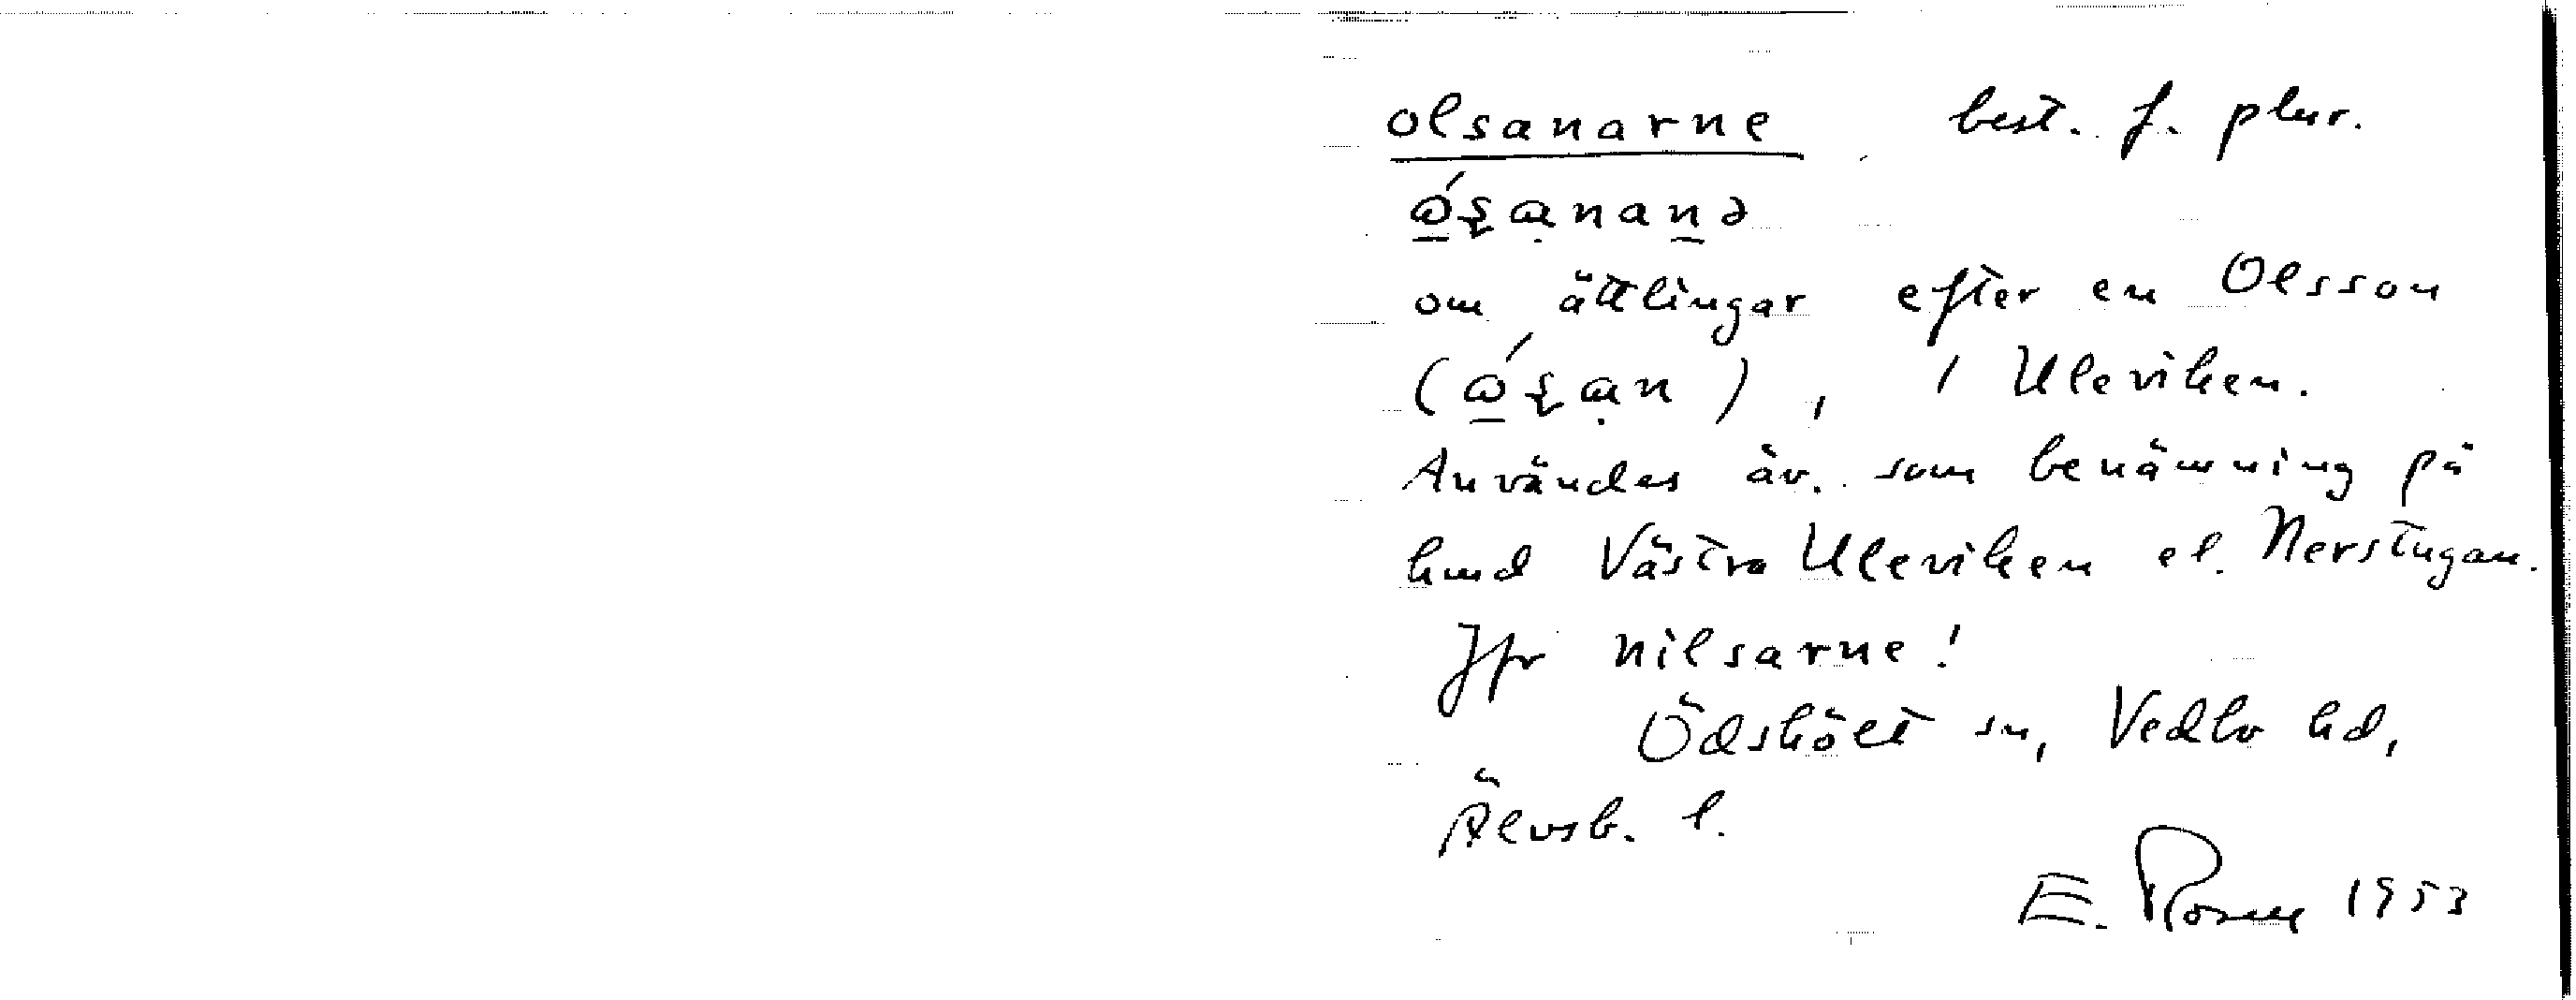 olsanarne best. f. plur.
om ättlingar efter en Olsson
i Uleviken.
Användes äv. som benämning på
hmd Västra Uleviken el. Nerstugan.
Jfr nilsarne!
Ödskölt sn, Vedbo hd,
Älvsb. l.
E. 1953